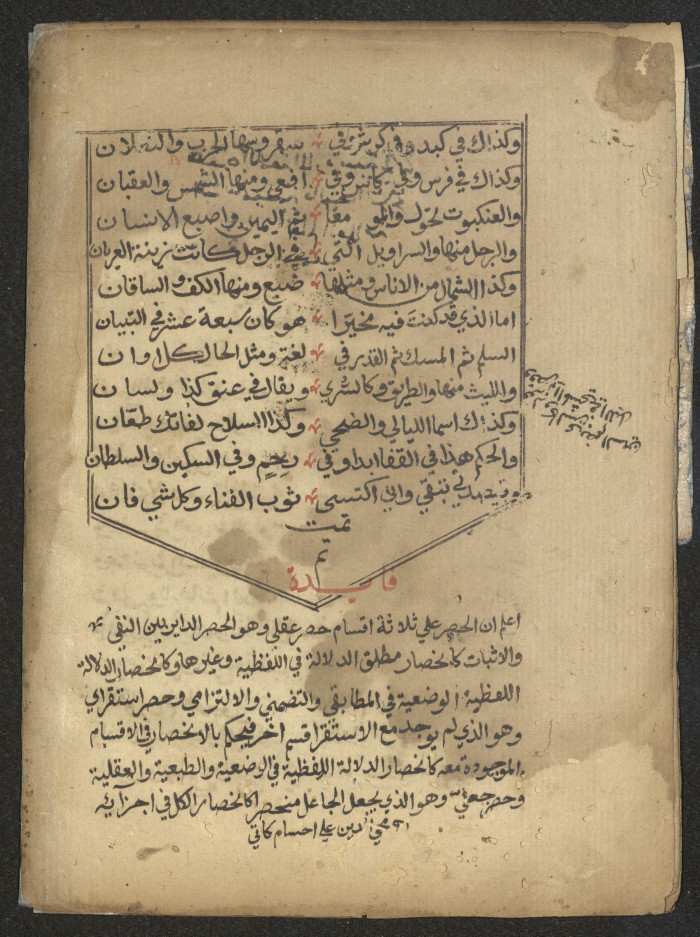 وكذاك في كبد وفي كرش وفي سقر ومنها الحرب والنعلان
وكذاك في فرس وفي كاس وفي افعى ومنها الشمس والعقبان
والعنكبوت تحول والموسى معا ثم اليمين واصبع الانسان
والرجل منها والسراويل التي في الرجل كانت زينة العريان
وكذا الشمال من الاناث ومثلها ضبع ومنها الكف والساقان
اما الذي قد كنت فيه مخيرا هو كان سبعة عشر في التبيان
السلم ثم المسك ثم القدر في لغة ومثل الحال كل اوان
والليث منها والطريق وكالسرى ويقال في عنق كذا ولسان
وكذاك اسما الليالي والضحى وكذا السلاح لفاتك طعان
والحكم هذا في القفا ابدا وفي رحم وفي السكين والسلطان
وقصيدتي تبقى واني اكتسى ثوب الفناء وكل شي فان
تمت
تم
فايدة
اعلم ان الحصر علي ثلاثة اقسام حصر عقلي وهو الحصر الداير بين النفي
والاثبات كانحصار مطلق الدلالة في اللفظية وغيرها وكانحصار الدلالة
اللفظية الوضعية في المطابقي والتضمني والالتزامي وحصر استقراي
وهو الذي لم يوجد مع الاستقرا قسم اخر فيحكم بالانحصار في الاقسام
الموجودة معه كانحصار الدلالة اللفظية في الوضعية والطبعية والعقلية
وحصر جعلي وهو الذي يجعل الجاعل منحصرا كانحصار الكل في اجزآيه
اه محي الدين علي احسام كاتي